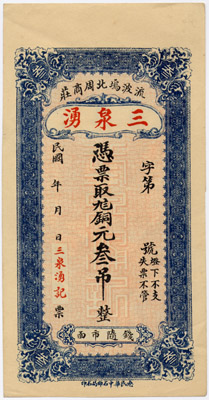 流波塢北周商莊
三泉湧
字第 號
燈下不支
失票不管
憑票取銅元叁吊整
民國 年 月 日 三泉湧記 票
錢隨市面